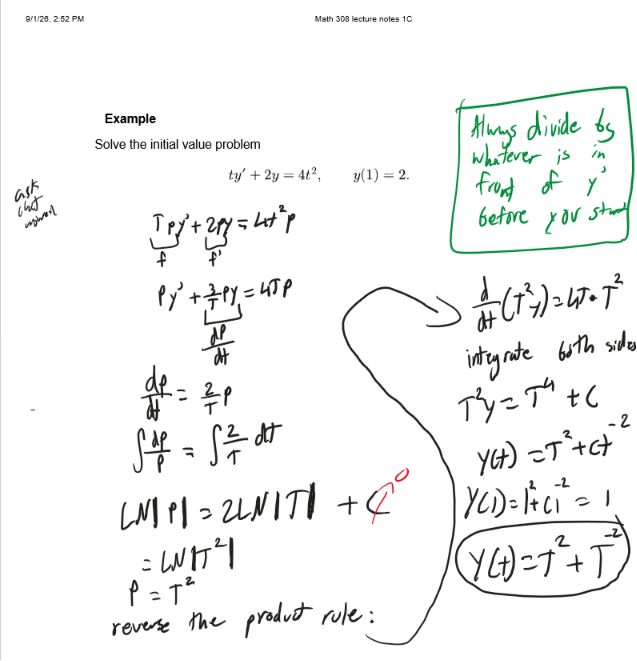 9/1/26, 2:52 PM
Math 308 lecture notes 1C
Example
Solve the initial value problem
ty′ + 2y = 4t², y(1) = 2.
ask
Always divide by
whatever is in
front of y'
before you start
Tpy' + 2py = 4t²p
f f'
Py' + 2/T Py = 4TP
dP/dt
dp/dt = 2/T P
∫ dp/P = ∫ 2/T dt
LN|P| = 2LN|T| + C 0
= LN|T²|
P = T²
reverse the product rule:
d/dt (T²y) = 4T · T²
integrate both sides
T²y = T⁴ + C
y(t) = T² + Ct⁻²
y(1) = 1² + C1⁻² = 1
y(t) = T² + T⁻²